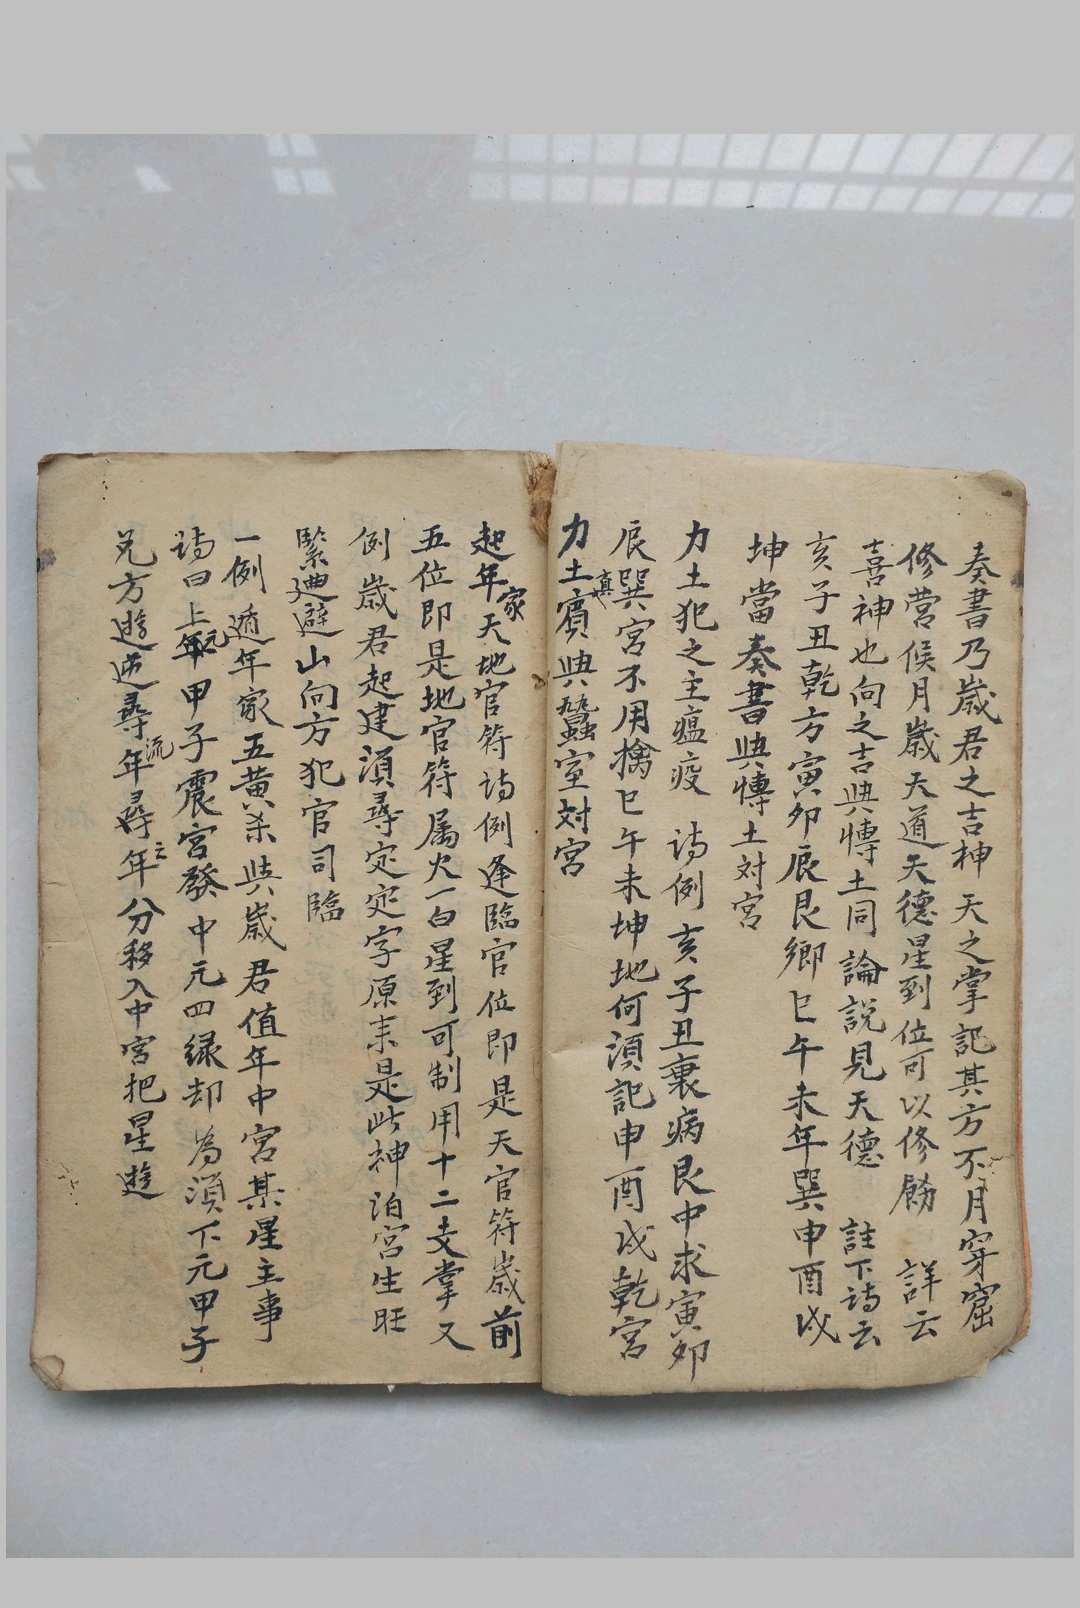 奏書乃歲君之吉神天之掌記其方不月穿窟
修营候月歲天道天德星到位可以修餙 詳云
喜神也向之吉與愽士同論説見天德 註下诗云
亥子丑乾方寅夘辰艮鄉巳午未年巽申酉戌
坤當奏書與愽士対宮
力士犯之主瘟疫 诗例亥子丑裏病艮中求寅夘
辰巽宮不用擒巳午未坤地何湏記申酉戌乾宮
力士真賔與蠶室対宮
起年家天地官符诗例逢臨官位即是天官符歲前
五位即是地官符属火一白星到可制用十二支掌又
例歲君起建湏尋定定字原来是此神泊宮生旺
緊廻避山向方犯官司臨
一例遁年家五黄杀與歲君值年中宮某星主事
诗曰上元甲子震宮發中元四緑却為湏下元甲子
兑方遊逆尋流年尋之年分移入中宮把星遊